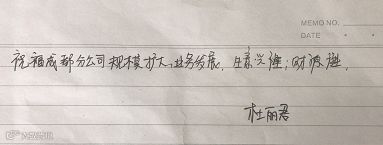 MEMO NO.
DATE
祝福成都分公司规模扩大，业务发展，生意兴隆；财源
杜丽君